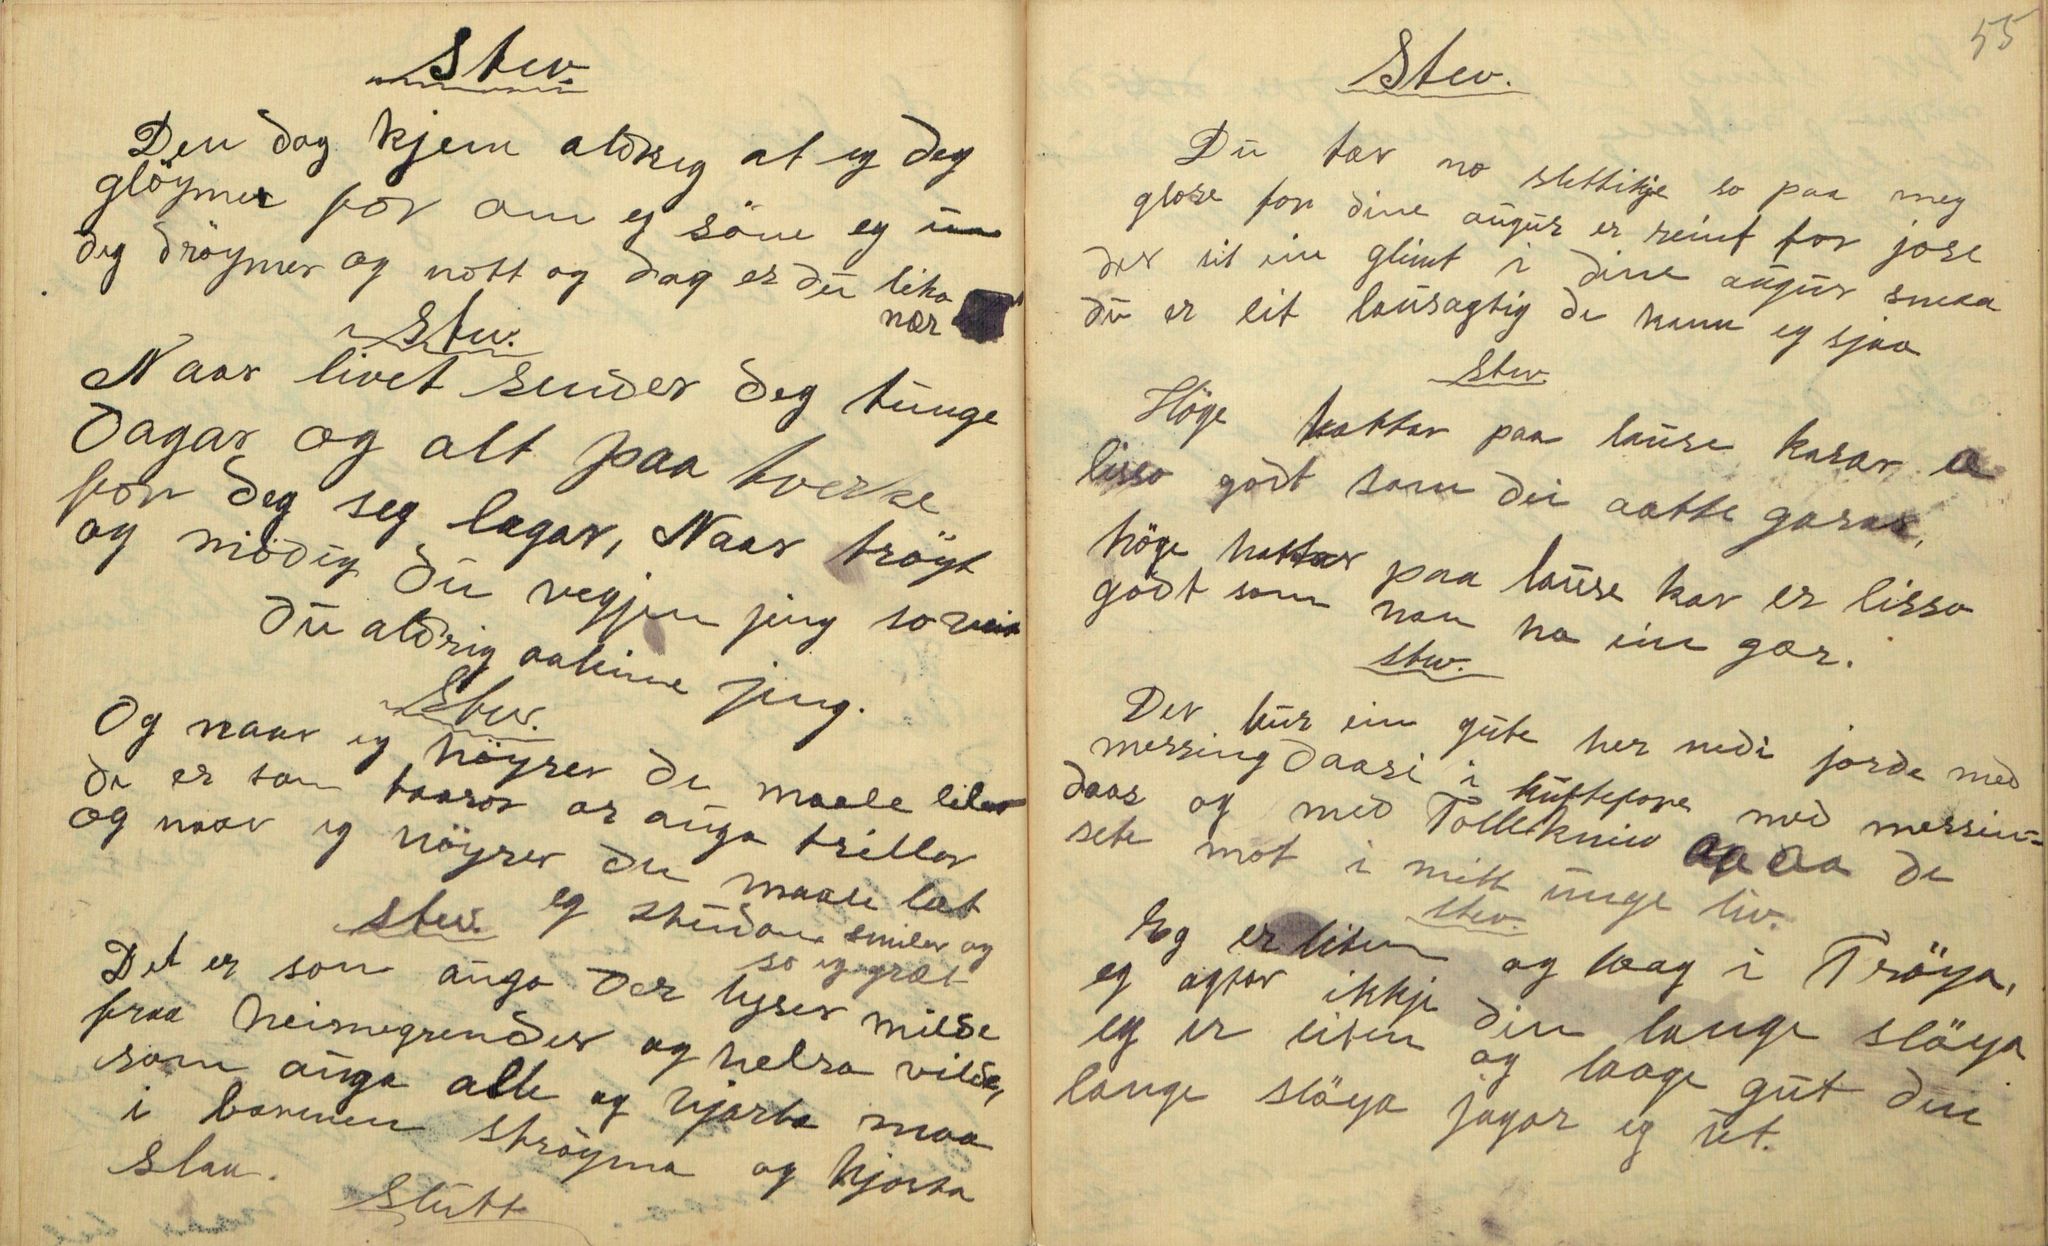 Stev.
Den dag kjem aldrig at eg deg
glöymer for om eg söve eg um
deg dröymer og nott og dag er du lika
nær
Stev.
Naar livet sender deg tunge
dagar og alt paa tverke
for deg seg lagar, Naar tröyt
og mödig du vegjen jeng so veit
du aldrig aaleine jeng.
Stev.
Og naar eg höyrer de maale liler
de er som taarar or auga triller
og naar eg höyrer de maale læt
eg stundom smiler og
so eg græt
Stev.
Det er som auga der lyser milde
fraa heimegrender og helsa vilde,
som auga alle og hjarta maa
i barmen ströyma og hjarta
slaa.
Slutt
55
Stev.
Du tar no slettikje so paa meg
glose for dine augur er reint for jose
der sit ein glimt i dine augur smaa
du er lit lausagtig de kann eg sjaa
Stev.
Höge hattar paa lause karar æ
lisso godt som dei aatte garar,
höge hattar paa lause kar er lisso
godt som han ha ein gar.
Stev.
Der bur ein gute her nedi jorde med
messing daasi i kuftefora med messin-
daas og med Tollekniv aa de
sete mot i mitt unge liv.
Stev.
Eg er liten og laag i Tröya,
eg agtar ikkje din lange slöya
eg er liten og laage gut din
lange slöya jagar eg ut.